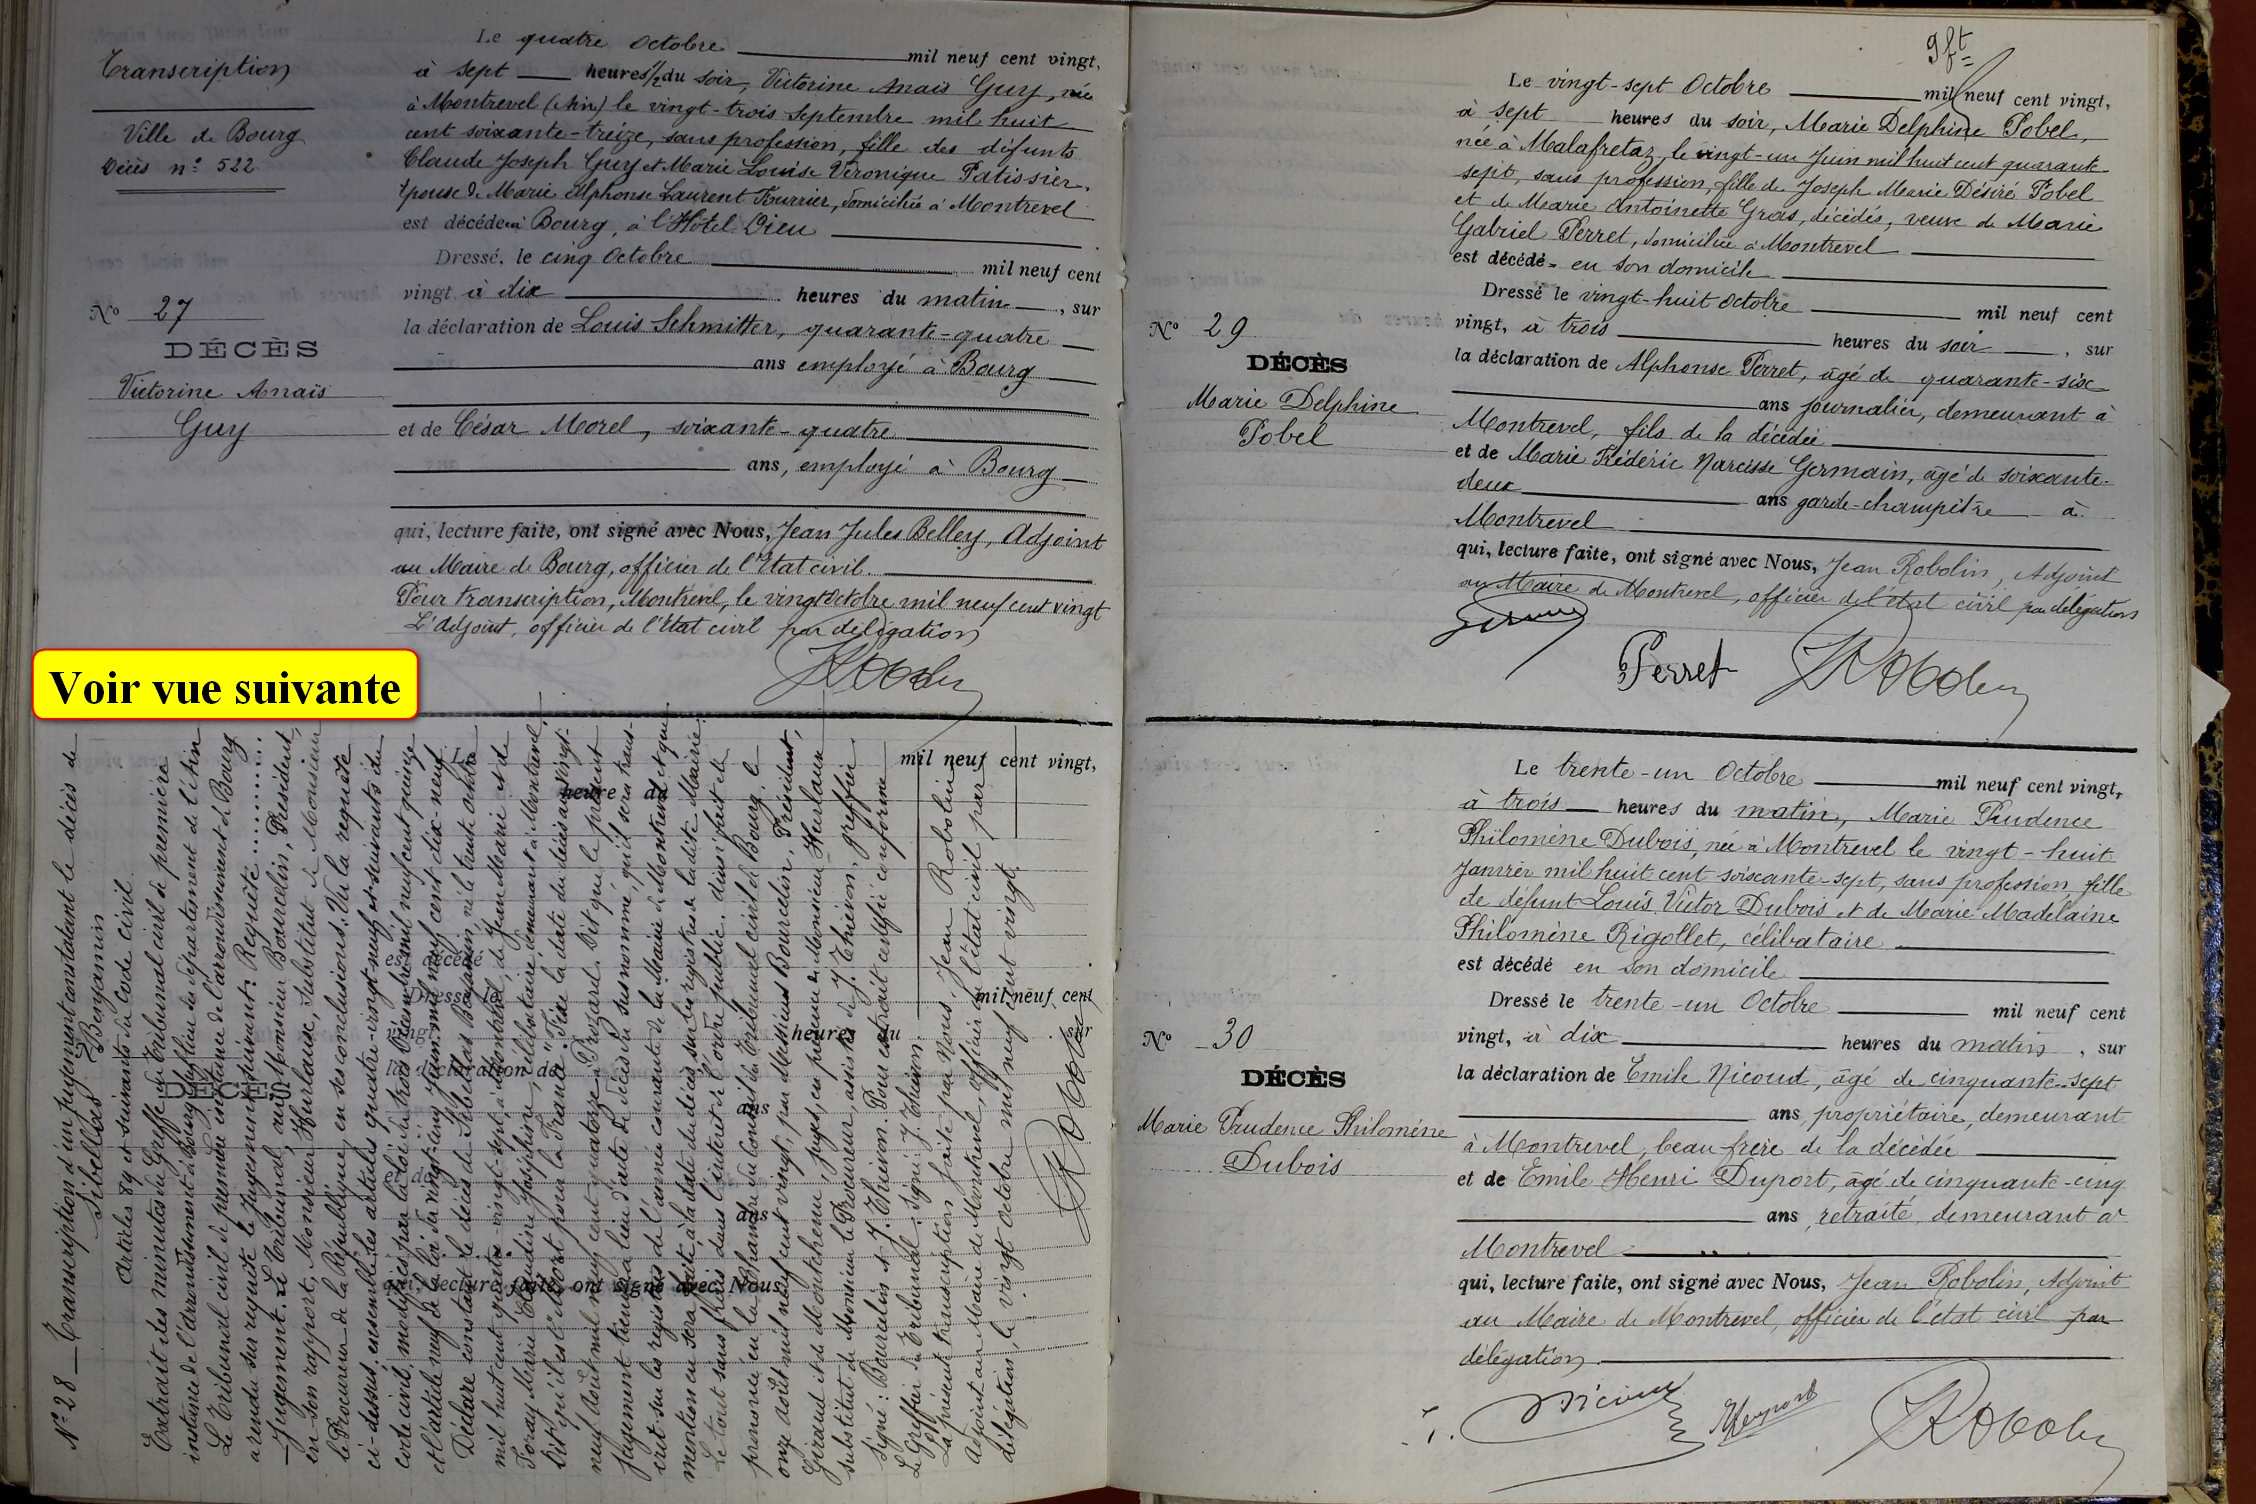 Transcription
Ville de Bourg
Décès nº 522
Nº 27
DÉCÈS
Victorine Anaïs
Guy
Le quatre Octobre mil neuf cent vingt,
à sept heures ½ du soir, Victorine Anaïs Guy, née
à Montrevel (Ain) le vingt-trois Septembre mil huit
cent soixante-treize, sans profession, fille des défunts
Claude Joseph Guy et Marie Louise Véronique Patissier,
épouse de Marie Alphonse Laurent Fourrier, domiciliée à Montrevel
est décédée à Bourg, à l'Hôtel Dieu
Dressé, le cinq Octobre mil neuf cent
vingt à dix heures du matin, sur
la déclaration de Louis Schmitter, quarante-quatre
ans employé à Bourg
et de César Morel, soixante-quatre
ans, employé à Bourg
qui, lecture faite, ont signé avec Nous, Jean Jules Belley, Adjoint
au Maire de Bourg, officier de l'Etat civil.
Pour transcription, Montrevel, le vingt Octobre mil neuf cent vingt
L'adjoint, officier de l'Etat civil par délégation
JRobolin
Voir vue suivante
Nº 28 _ Transcription d'un jugement constatant le décès de
Sibellas Benjamin
Articles 89 et suivants du Code civil
Extrait des minutes du Greffe du Tribunal civil de première
instance de l'arrondissement de Bourg, chef-lieu du département de l'Ain
Le Tribunal civil de première instance de l'arrondissement de Bourg
a rendu sur requête le jugement suivant: Requête
Jugement. Le Tribunal, ouï Monsieur Bourcelin, Président,
en son rapport, Monsieur Hurlaux, Substitut de Monsieur
le Procureur de la République, en ses conclusions. Vu la requête
ci-dessus, ensemble les articles quatre-vingt neuf et suivants du
code civil, modifiés par la loi du trois Décembre mil neuf cent quinze
et l'article neuf de la loi du vingt-cinq Juin mil neuf cent dix-neuf.
Déclare constant le décès de Sibellas Benjamin, né le trente
mil huit cent quatre-vingt-sept, à Montrevel, de Jean Marie et de
Foray Marie Claudine Joséphine, célibataire, demeurant à Montrevel.
Dit qu'il est mort pour la France. Fixe la date du décès au vingt-
neuf Août mil neuf cent quatorze à . Dit que le présent
jugement tiendra lieu d'acte de décès du susnommé, qu'il sera trans-
crit sur les registres de l'année courante de la Mairie de Montrevel et que
mention en sera faite à la date du décès sur les registres de la dite Mairie
Le tout sans frais dans l'intérêt de l'ordre public. Ainsi fait et
prononcé en la Chambre du Conseil du Tribunal civil de Bourg, le
onze août mil neuf cent vingt, par Messieurs Bourcelin, Président,
Giraud et de Montchenu, juges, en présence de Monsieur Hurlaux
substitut de Monsieur le Procureur, assistés de J. Thiévon, greffier
Signé: Bourcelin et J. Thiévon. Pour extrait certifié conforme
Le Greffier du Tribunal. Signé: J. Thiévon.
La présente transcription faite par Nous, Jean Robolin
Adjoint au Maire de Montrevel, officier de l'état civil par
délégation, le vingt Octobre mil neuf cent vingt
JRobolin
DÉCÈS
Le mil neuf cent vingt,
heure du
est décédé
Dressé le mil neuf cent
vingt heures du sur
la déclaration de
ans
et de
ans
qui, lecture faite, ont signé avec Nous,
9ft
Nº 29
DÉCÈS
Marie Delphine
Pobel
Le vingt-sept Octobre mil neuf cent vingt,
à sept heures du soir, Marie Delphine Pobel,
née à Malafretaz, le vingt-un Juin mil huit cent quarante-
sept, sans profession, fille de Joseph Marie Désiré Pobel
et de Marie Antoinette Gros, décédés, veuve de Marie
Gabriel Perret, domiciliée à Montrevel
est décédée en son domicile
Dressé le vingt-huit Octobre mil neuf cent
vingt, à trois heures du soir, sur
la déclaration de Alphonse Perret, âgé de quarante-six
ans journalier, demeurant à
Montrevel, fils de la décédée
et de Marie Frédéric Narcisse Germain, âgé de soixante-
deux ans garde-champêtre à
Montrevel
qui, lecture faite, ont signé avec Nous, Jean Robolin, Adjoint
au Maire de Montrevel, officier de l'état civil par délégation
Germain
Perret
JRobolin
Nº 30
DÉCÈS
Marie Prudence Philomène
Dubois
Le trente-un Octobre mil neuf cent vingt,
à trois heures du matin, Marie Prudence
Philomène Dubois, née à Montrevel le vingt-huit
Janvier mil huit cent soixante-sept, sans profession, fille
de défunt Louis Victor Dubois et de Marie Madelaine
Philomène Rigollet, célibataire
est décédé en son domicile
Dressé le trente-un Octobre mil neuf cent
vingt, à dix heures du matin, sur
la déclaration de Emile Nicoud, âgé de cinquante-sept
ans, propriétaire, demeurant
à Montrevel, beau-frère de la décédée
et de Emile Henri Duport, âgé de cinquante-cinq
ans, retraité, demeurant à
Montrevel
qui, lecture faite, ont signé avec Nous, Jean Robolin, Adjoint
au Maire de Montrevel, officier de l'état civil par
délégation
Nicoud
Duport
JRobolin